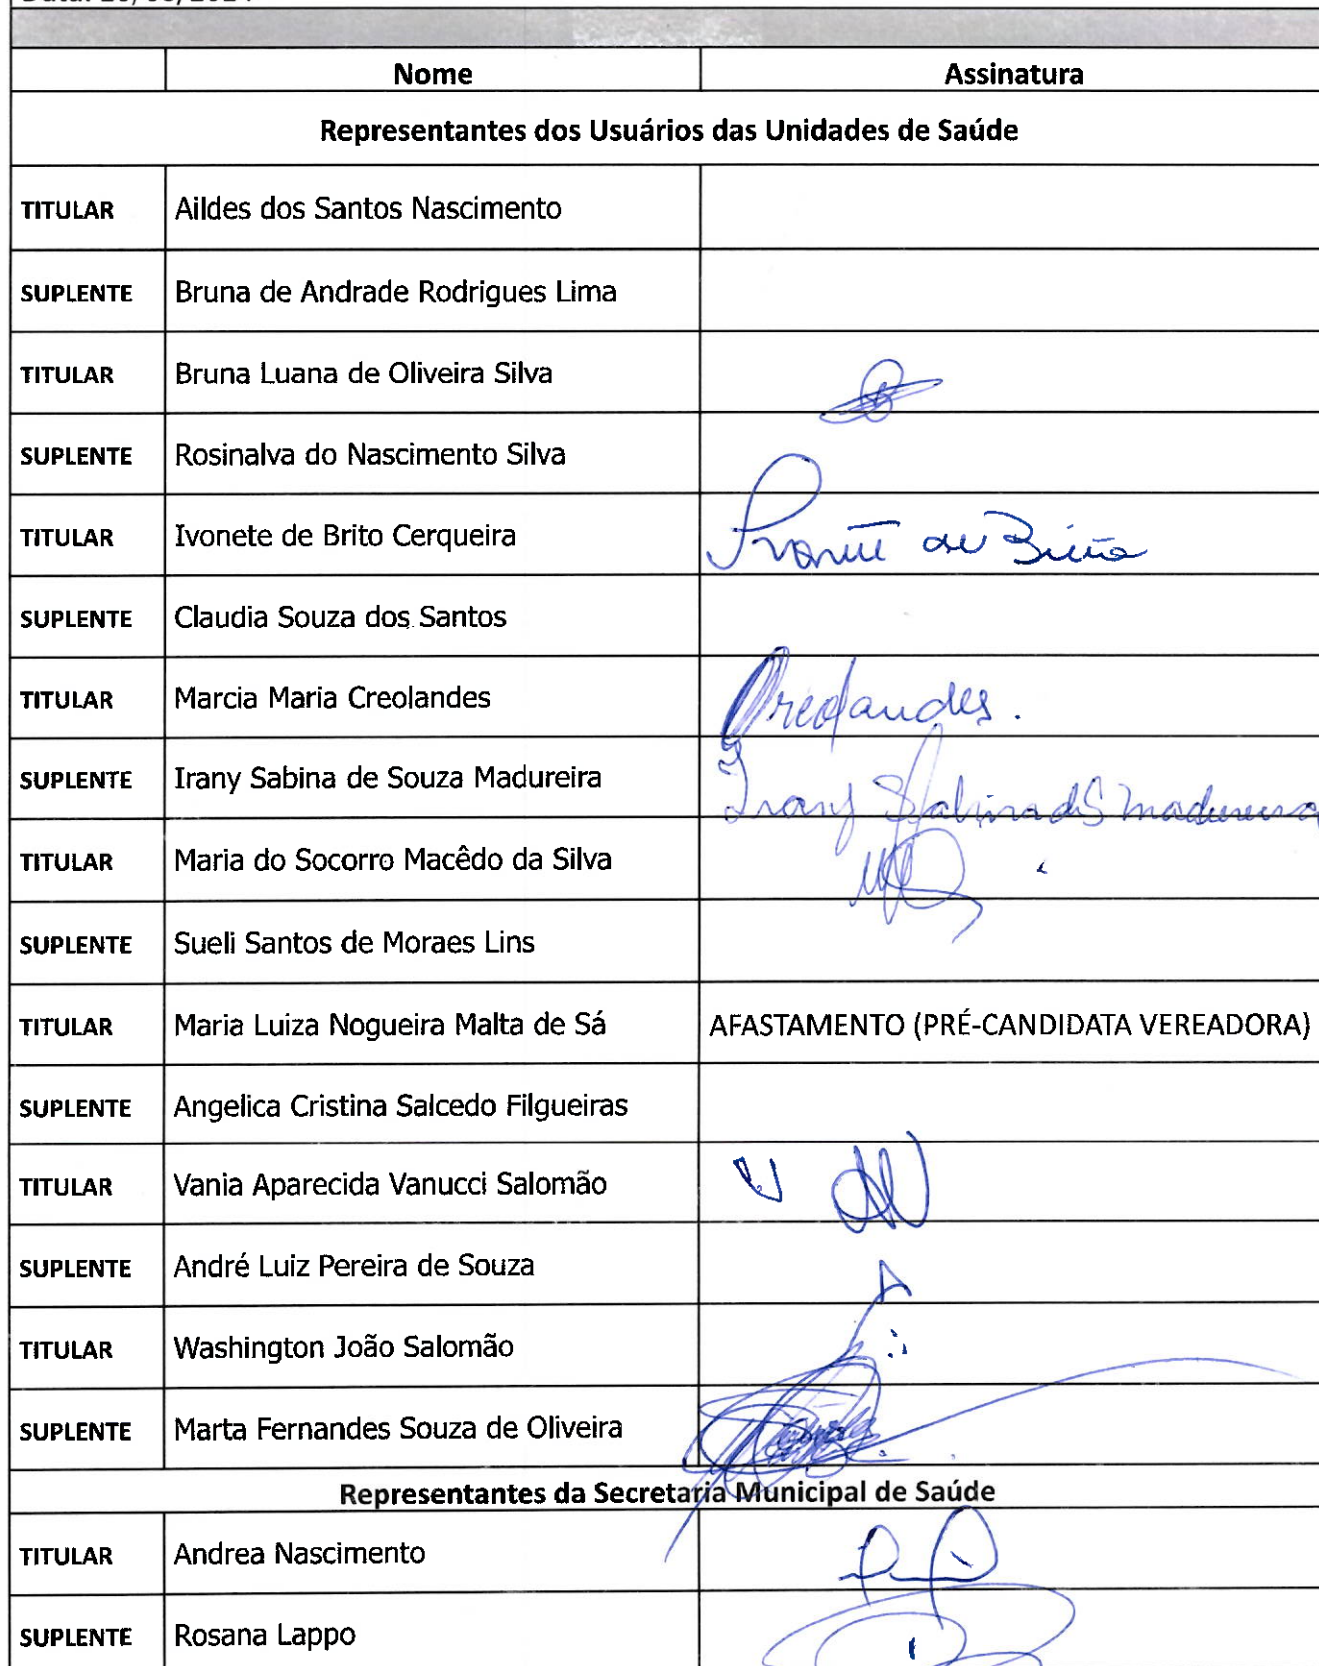 Nome Assinatura
Representantes dos Usuários das Unidades de Saúde
TITULAR Aildes dos Santos Nascimento
SUPLENTE Bruna de Andrade Rodrigues Lima
TITULAR Bruna Luana de Oliveira Silva
SUPLENTE Rosinalva do Nascimento Silva
TITULAR Ivonete de Brito Cerqueira
SUPLENTE Claudia Souza dos Santos
TITULAR Marcia Maria Creolandes Creolandes.
SUPLENTE Irany Sabina de Souza Madureira Irany Sabina d S Madureira
TITULAR Maria do Socorro Macêdo da Silva
SUPLENTE Sueli Santos de Moraes Lins
TITULAR Maria Luiza Nogueira Malta de Sá AFASTAMENTO (PRÉ-CANDIDATA VEREADORA)
SUPLENTE Angelica Cristina Salcedo Filgueiras
TITULAR Vania Aparecida Vanucci Salomão
SUPLENTE André Luiz Pereira de Souza
TITULAR Washington João Salomão
SUPLENTE Marta Fernandes Souza de Oliveira
Representantes da Secretaria Municipal de Saúde
TITULAR Andrea Nascimento
SUPLENTE Rosana Lappo